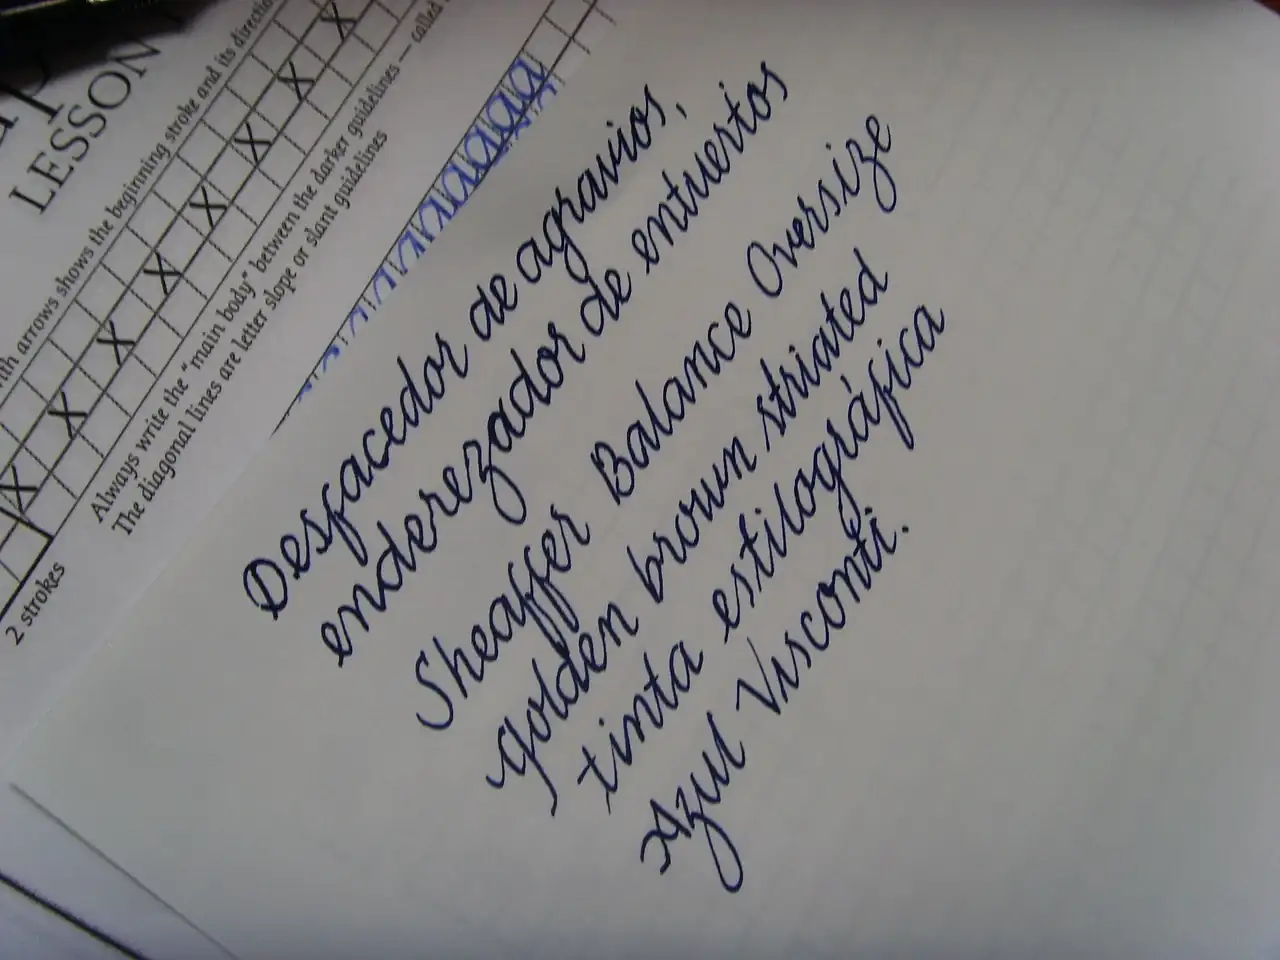 LESSON
with arrows shows the beginning stroke and its directio
Always write the "main body" between the darker guidelines — called
The diagonal lines are letter slope or slant guidelines
2 strokes
aaaaa
Desfacedor de agravios,
enderezador de entuertos
Sheaffer Balance Oversize
golden brown striated
tinta estilográfica
Azul Visconti.